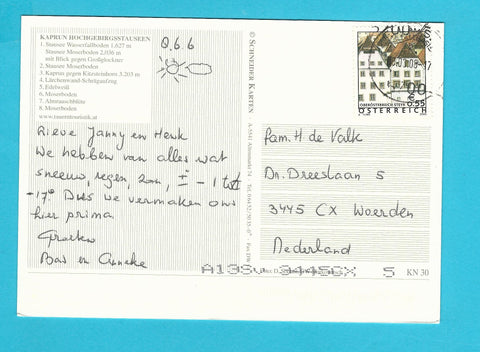 KAPRUN HOCHGEBIRGSSTAUSEEN
1. Stausee Wasserfallboden 1.627 m
Stausee Mooserboden 2.036 m
mit Blick gegen Großglockner
2. Stausee Mooserboden
3. Kaprun gegen Kitzsteinhorn 3.203 m
4. Lärchenwand-Schrägaufzug
5. Edelweiß
6. Mooserboden
7. Almrauschblüte
8. Mooserboden
www.tauerntouristik.at
0.6.6
Lieve Janny en Henk
We hebben van alles wat
sneeuw, regen, zon, ± - 1 tot
+17° Dus we vermaken ons
hier prima
Groeten
Bas en Anneke
© SCHNEIDER KARTEN
ÖSTERREICH
€ 0.55
Fam. H de Valk
Dr. Dreeslaan 5
3445 CX Woerden
Nederland
5
KN 30